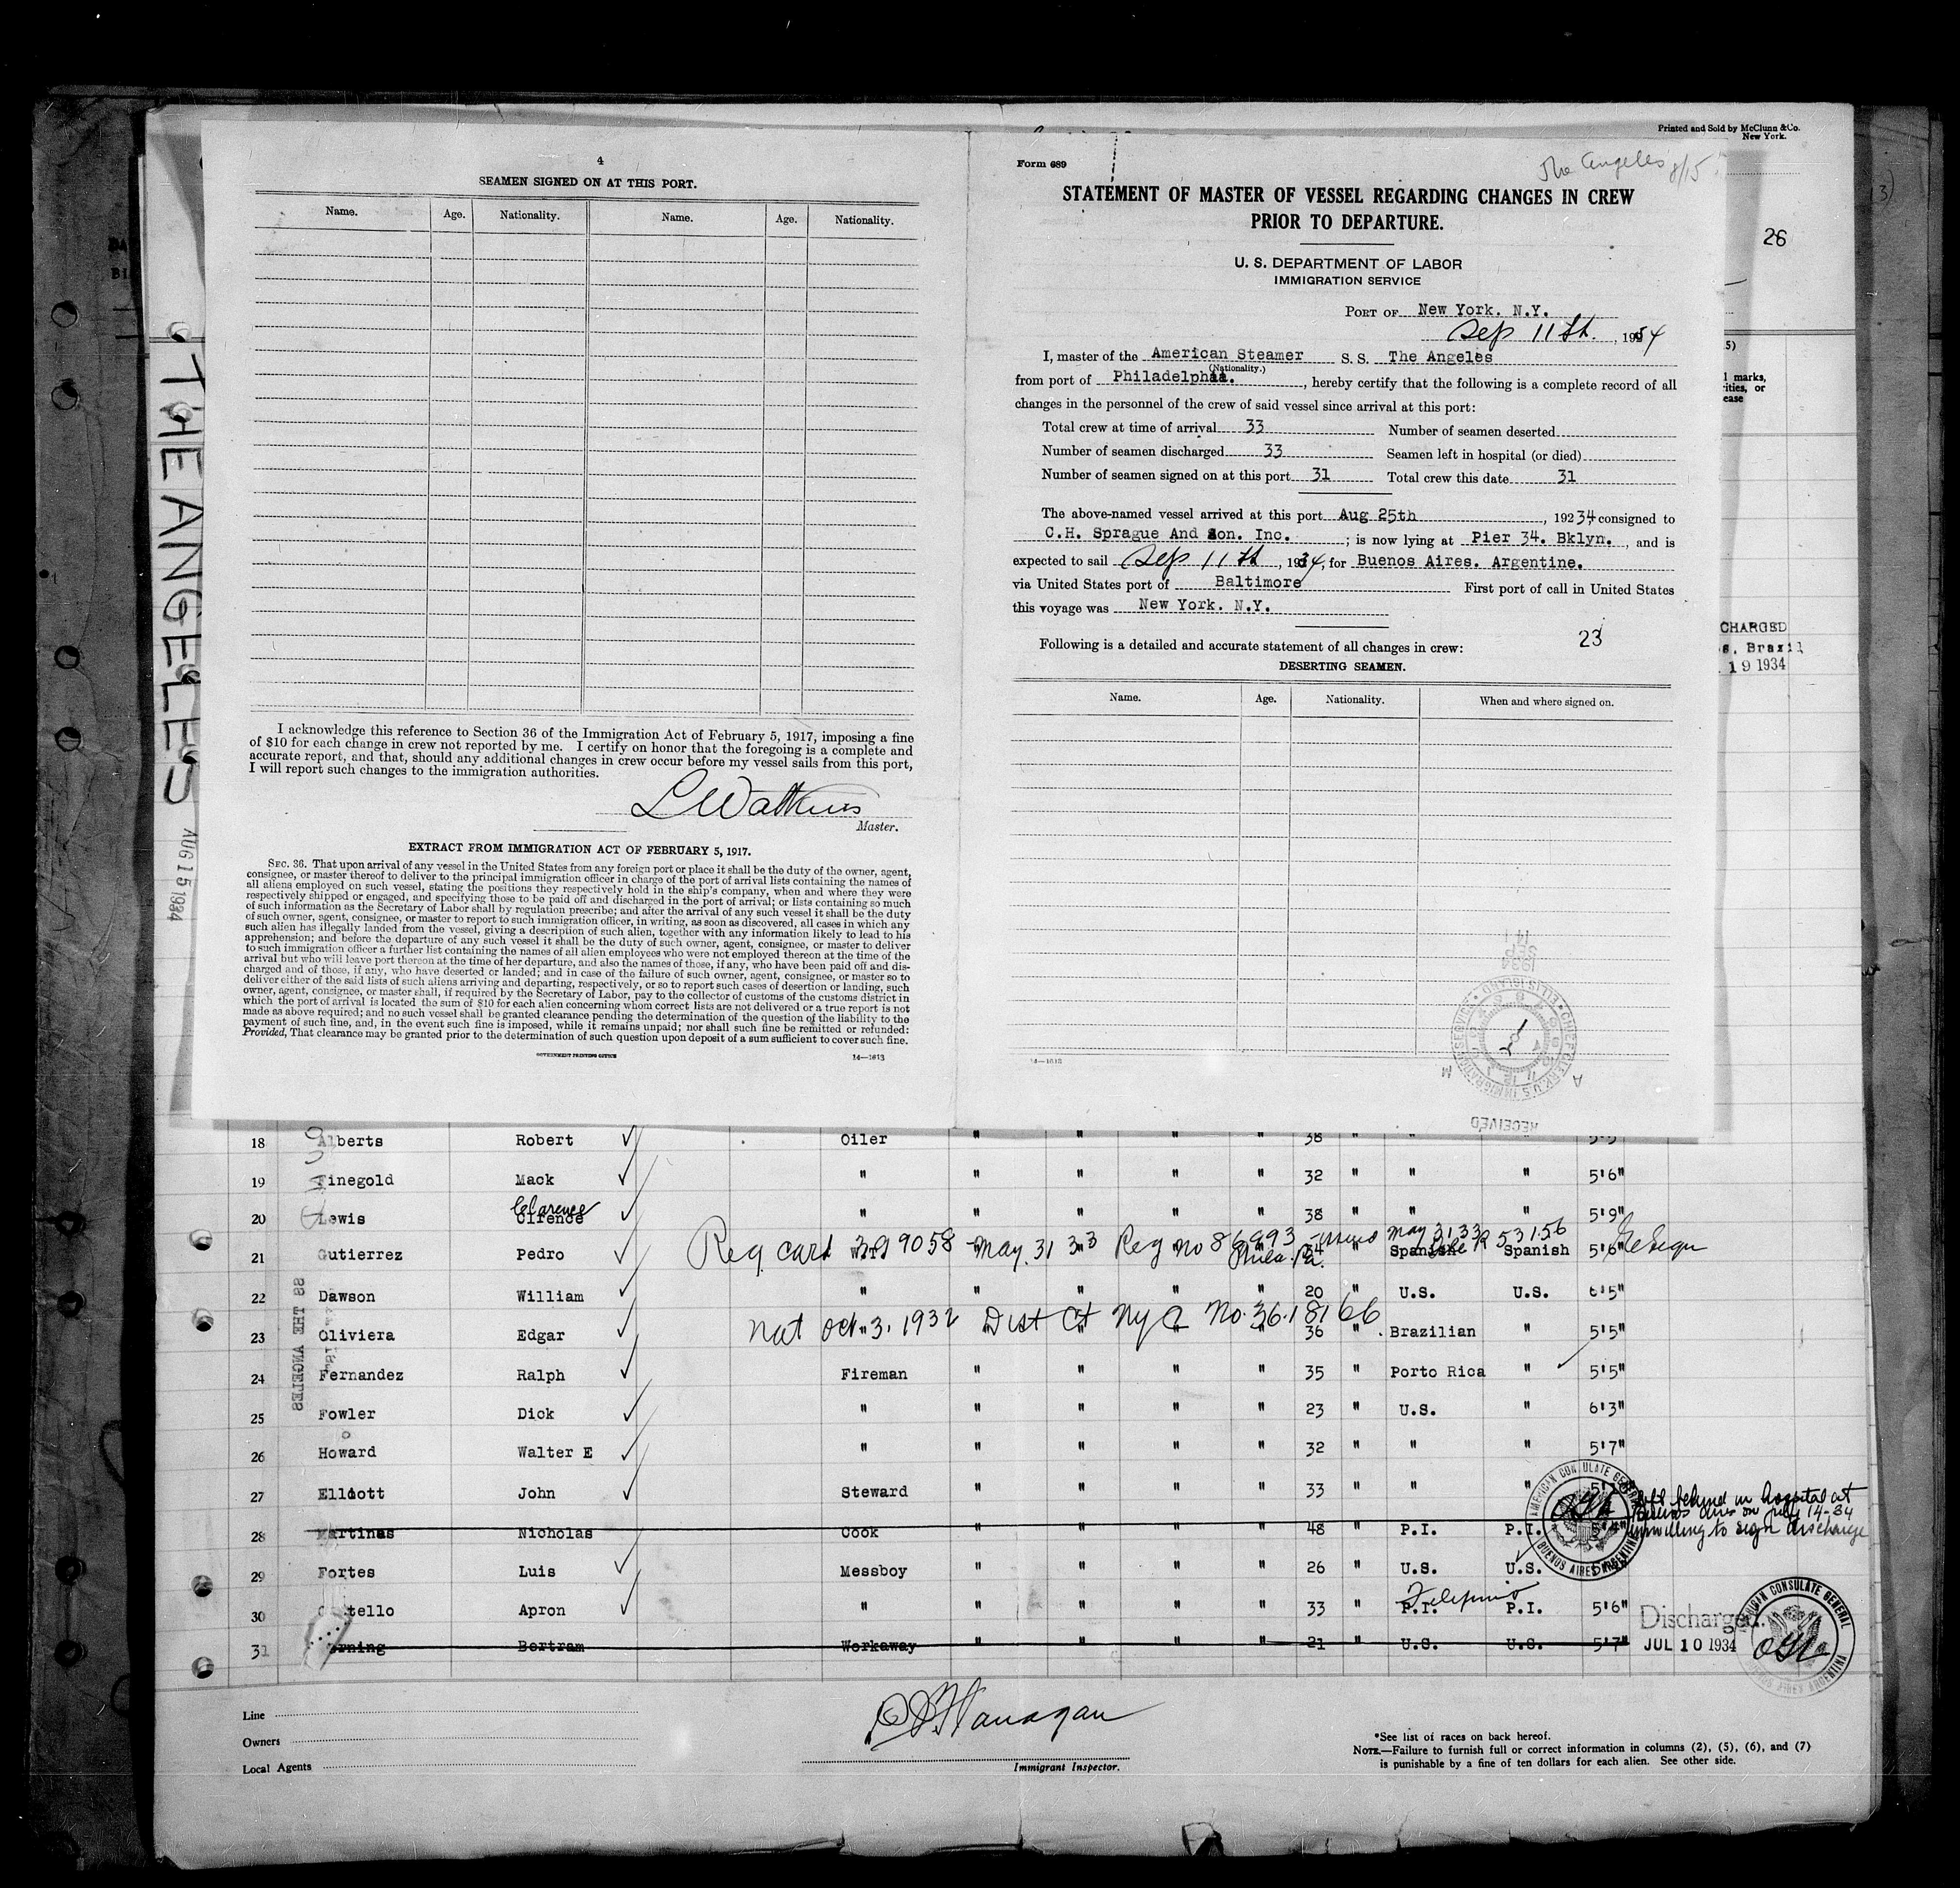 Printed and Sold by McClunn &Co.
New York.
4
SEAMEN SIGNED ON AT THIS PORT.
Name. Age. Nationality. Name. Age. Nationality.
I acknowledge this reference to Section 36 of the Immigration Act of February 5, 1917, imposing a fine
of $10 for each change in crew not reported by me. I certify on honor that the foregoing is a complete and
accurate report, and that, should any additional changes in crew occur before my vessel sails from this port,
I will report such changes to the immigration authorities.
L Watkins
Master.
EXTRACT FROM IMMIGRATION ACT OF FEBRUARY 5, 1917.
SEC. 36. That upon arrival of any vessel in the United States from any foreign port or place it shall be the duty of the owner, agent,
consignee, or master thereof to deliver to the principal immigration officer in charge of the port of arrival lists containing the names of
all aliens employed on such vessel, stating the positions they respectively hold in the ship's company, when and where they were
respectively shipped or engaged, and specifying those to be paid off and discharged in the port of arrival; or lists containing so much
of such information as the Secretary of Labor shall by regulation prescribe; and after the arrival of any such vessel it shall be the duty
of such owner, agent, consignee, or master to report to such immigration officer, in writing, as soon as discovered, all cases in which any
such alien has illegally landed from the vessel, giving a description of such alien, together with any information likely to lead to his
apprehension; and before the departure of any such vessel it shall be the duty of such owner, agent, consignee, or master to deliver
to such immigration officer a further list containing the names of all alien employees who were not employed thereon at the time of the
arrival but who will leave port thereon at the time of her departure, and also the names of those, if any, who have been paid off and dis-
charged and of those, if any, who have deserted or landed; and in case of the failure of such owner, agent, consignee, or master so to
deliver either of the said lists of such aliens arriving and departing, respectively, or so to report such cases of desertion or landing, such
owner, agent, consignee, or master shall, if required by the Secretary of Labor, pay to the collector of customs of the customs district in
which the port of arrival is located the sum of $10 for each alien concerning whom correct lists are not delivered or a true report is not
made as above required; and no such vessel shall be granted clearance pending the determination of the question of the liability to the
payment of such fine, and, in the event such fine is imposed, while it remains unpaid; nor shall such fine be remitted or refunded:
Provided, That clearance may be granted prior to the determination of such question upon deposit of a sum sufficient to cover such fine.
GOVERNMENT PRINTING OFFICE 14—1613
Form 689
The Angeles 8/15
STATEMENT OF MASTER OF VESSEL REGARDING CHANGES IN CREW
PRIOR TO DEPARTURE.
U. S. DEPARTMENT OF LABOR
IMMIGRATION SERVICE
PORT OF New York. N.Y.
Sep 11th. , 1934
I, master of the American Steamer S. S. The Angeles
(Nationality.)
from port of Philadelphia. , hereby certify that the following is a complete record of all
changes in the personnel of the crew of said vessel since arrival at this port:
Total crew at time of arrival 33 Number of seamen deserted
Number of seamen discharged 33 Seamen left in hospital (or died)
Number of seamen signed on at this port 31 Total crew this date 31
The above-named vessel arrived at this port Aug 25th , 19234 consigned to
C.H. Sprague And Son. Inc. ; is now lying at Pier 34. Bklyn. , and is
expected to sail Sep 11th , 1934, for Buenos Aires. Argentine.
via United States port of Baltimore First port of call in United States
this voyage was New York. N.Y.
23
Following is a detailed and accurate statement of all changes in crew:
DESERTING SEAMEN.
Name. Age. Nationality. When and where signed on.
14—1613
RECEIVED
CHIEF CLERK U.S. IMMIGRATION SERVICE ELLIS ISLAND
A M
1934
SEP
11
26
5)
l marks,
ities, or
ease
CHARGED
s, Brazil
19 1934
THE ANGELES
AUG 15 1934
SS THE ANGELES
18 Alberts Robert Oiler " " " " 38 " " 5'5"
19 Finegold Mack " " " " " 32 " " " 5'6"
Clarence
20 Lewis Clfence " 38 " " " 5'9"
Reg card 329058 May. 31 33 Reg no 866993 Issued May 31 33 R 53156
Phila. Pa.
21 Gutierrez Pedro " 34 " Spanishe Spanish 5'6"
22 Dawson William " " " " " 20 " U.S. U.S. 6'5"
Nat Oct. 3. 1932 Dist Ct NyC No. 3618166
23 Oliviera Edgar " 36 " Brazilian " 5'5"
24 Fernandez Ralph Fireman " " " " 35 " Porto Rica " 5'5"
25 Fowler Dick " " " " " 23 " U.S. " 6'3"
26 Howard Walter E " " " " " 32 " " " 5'7"
27 Elliott John Steward " " " " 33 " " "
left behind in hospital at
Buenos Aires on July 14-34
unwilling to sign discharge
28 Martinas Nicholas Cook " " " " 48 " P.I. P.I. 5'4"
AMERICAN CONSULATE GENERAL BUENOS AIRES ARGENTINA
29 Fortes Luis Messboy " " " " 26 " U.S. U.S.
Filipino
30 Costello Apron " " " " " 33 " P.I. P.I. 5'6"
31 orning Bertram Workaway " " " " 21 " U.S. U.S. 5'7"
Discharged.
JUL 10 1934
AMERICAN CONSULATE GENERAL BUENOS AIRES ARGENTINA
Line
Owners
Local Agents
Flanagan
Immigrant Inspector.
*See list of races on back hereof.
NOTE.—Failure to furnish full or correct information in columns (2), (5), (6), and (7)
is punishable by a fine of ten dollars for each alien. See other side.